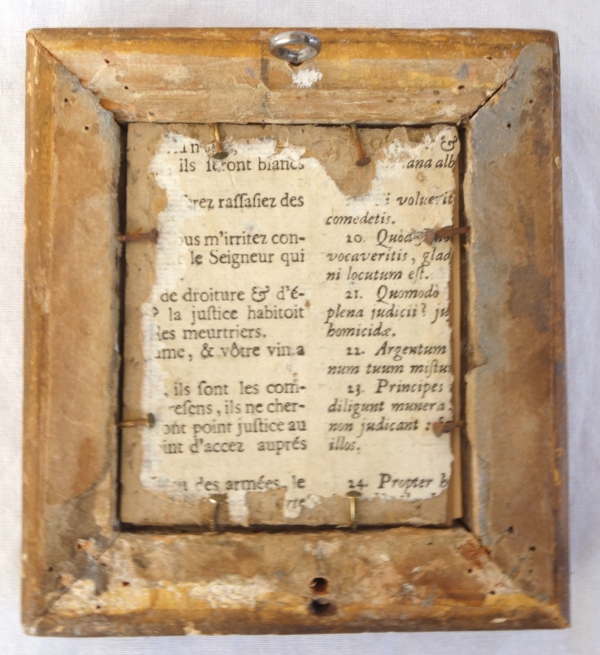 ils ſeront blancs
rez raſſaſiez des
ous m'irritez con-
le Seigneur qui
de droiture & d'é-
? la juſtice habitoit
les meurtriers.
ume, & vôtre vin a
, ils ſont les com-
, ils ne cher-
ont point juſtice au
int d'accez auprés
des armées, le
&
ana alb
i voluerit
comedetis.
20. Quòd
vocaveritis, glad
ni locutum eſt.
21. Quomodo
plena judicii? ju
homicidæ.
22. Argentum
num tuum miſtu
23. Principes
diligunt munera
non judicant
illos.
24. Propter h